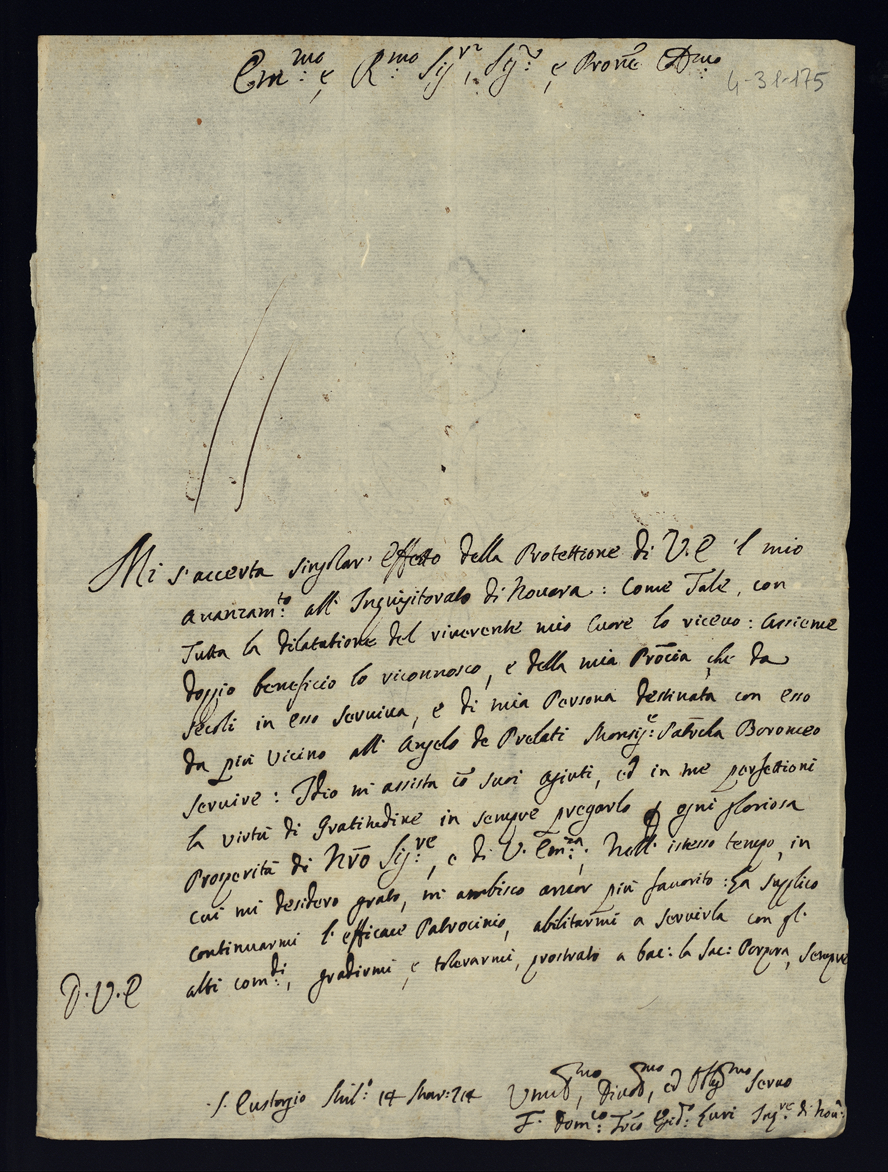 Em.mo e R.mo Sig.r, Sig.r e Prone C.mo
4-31-175
Mi s'accerta singolar' effetto della Protettione di V.E 'l mio
avanzam.to all' Inquisitorato di Novara: Come Tale, con
Tutta la dilatatione del riverente mio Cuore lo ricevo: assieme
doppio beneficio lo riconnosco, e della mia Pro͞cia, che da
secoli in esso serviva, e di mia Persona destinata con esso
da più vicino all' Angelo de Prelati Monsig.e Boromeo
servire: Idio mi assista co͞ suoi ajuti, ed in me perfettioni
la virtù di Gratitudine in sempre pregarlo ogni gloriosa
Prosperità di Nr͞o Sig.re, e di V. Em.za: Nell' istesso tempo, in
cui mi desidero grato, mi ambisco ancor più favorito: La supplico
continuarmi l'efficace Patrocinio, abilitarmi a servirla con gl'
alti com.di, gradirmi, e tolerarmi, prostrato a bac: la Sac: Porpora, sempre
D.V.E
S. Eustorgio Mil.o 14 714
Um.mo, Divo.mo, ed Obg.mo Servo
F. Dom.co Inq.re di Nov: